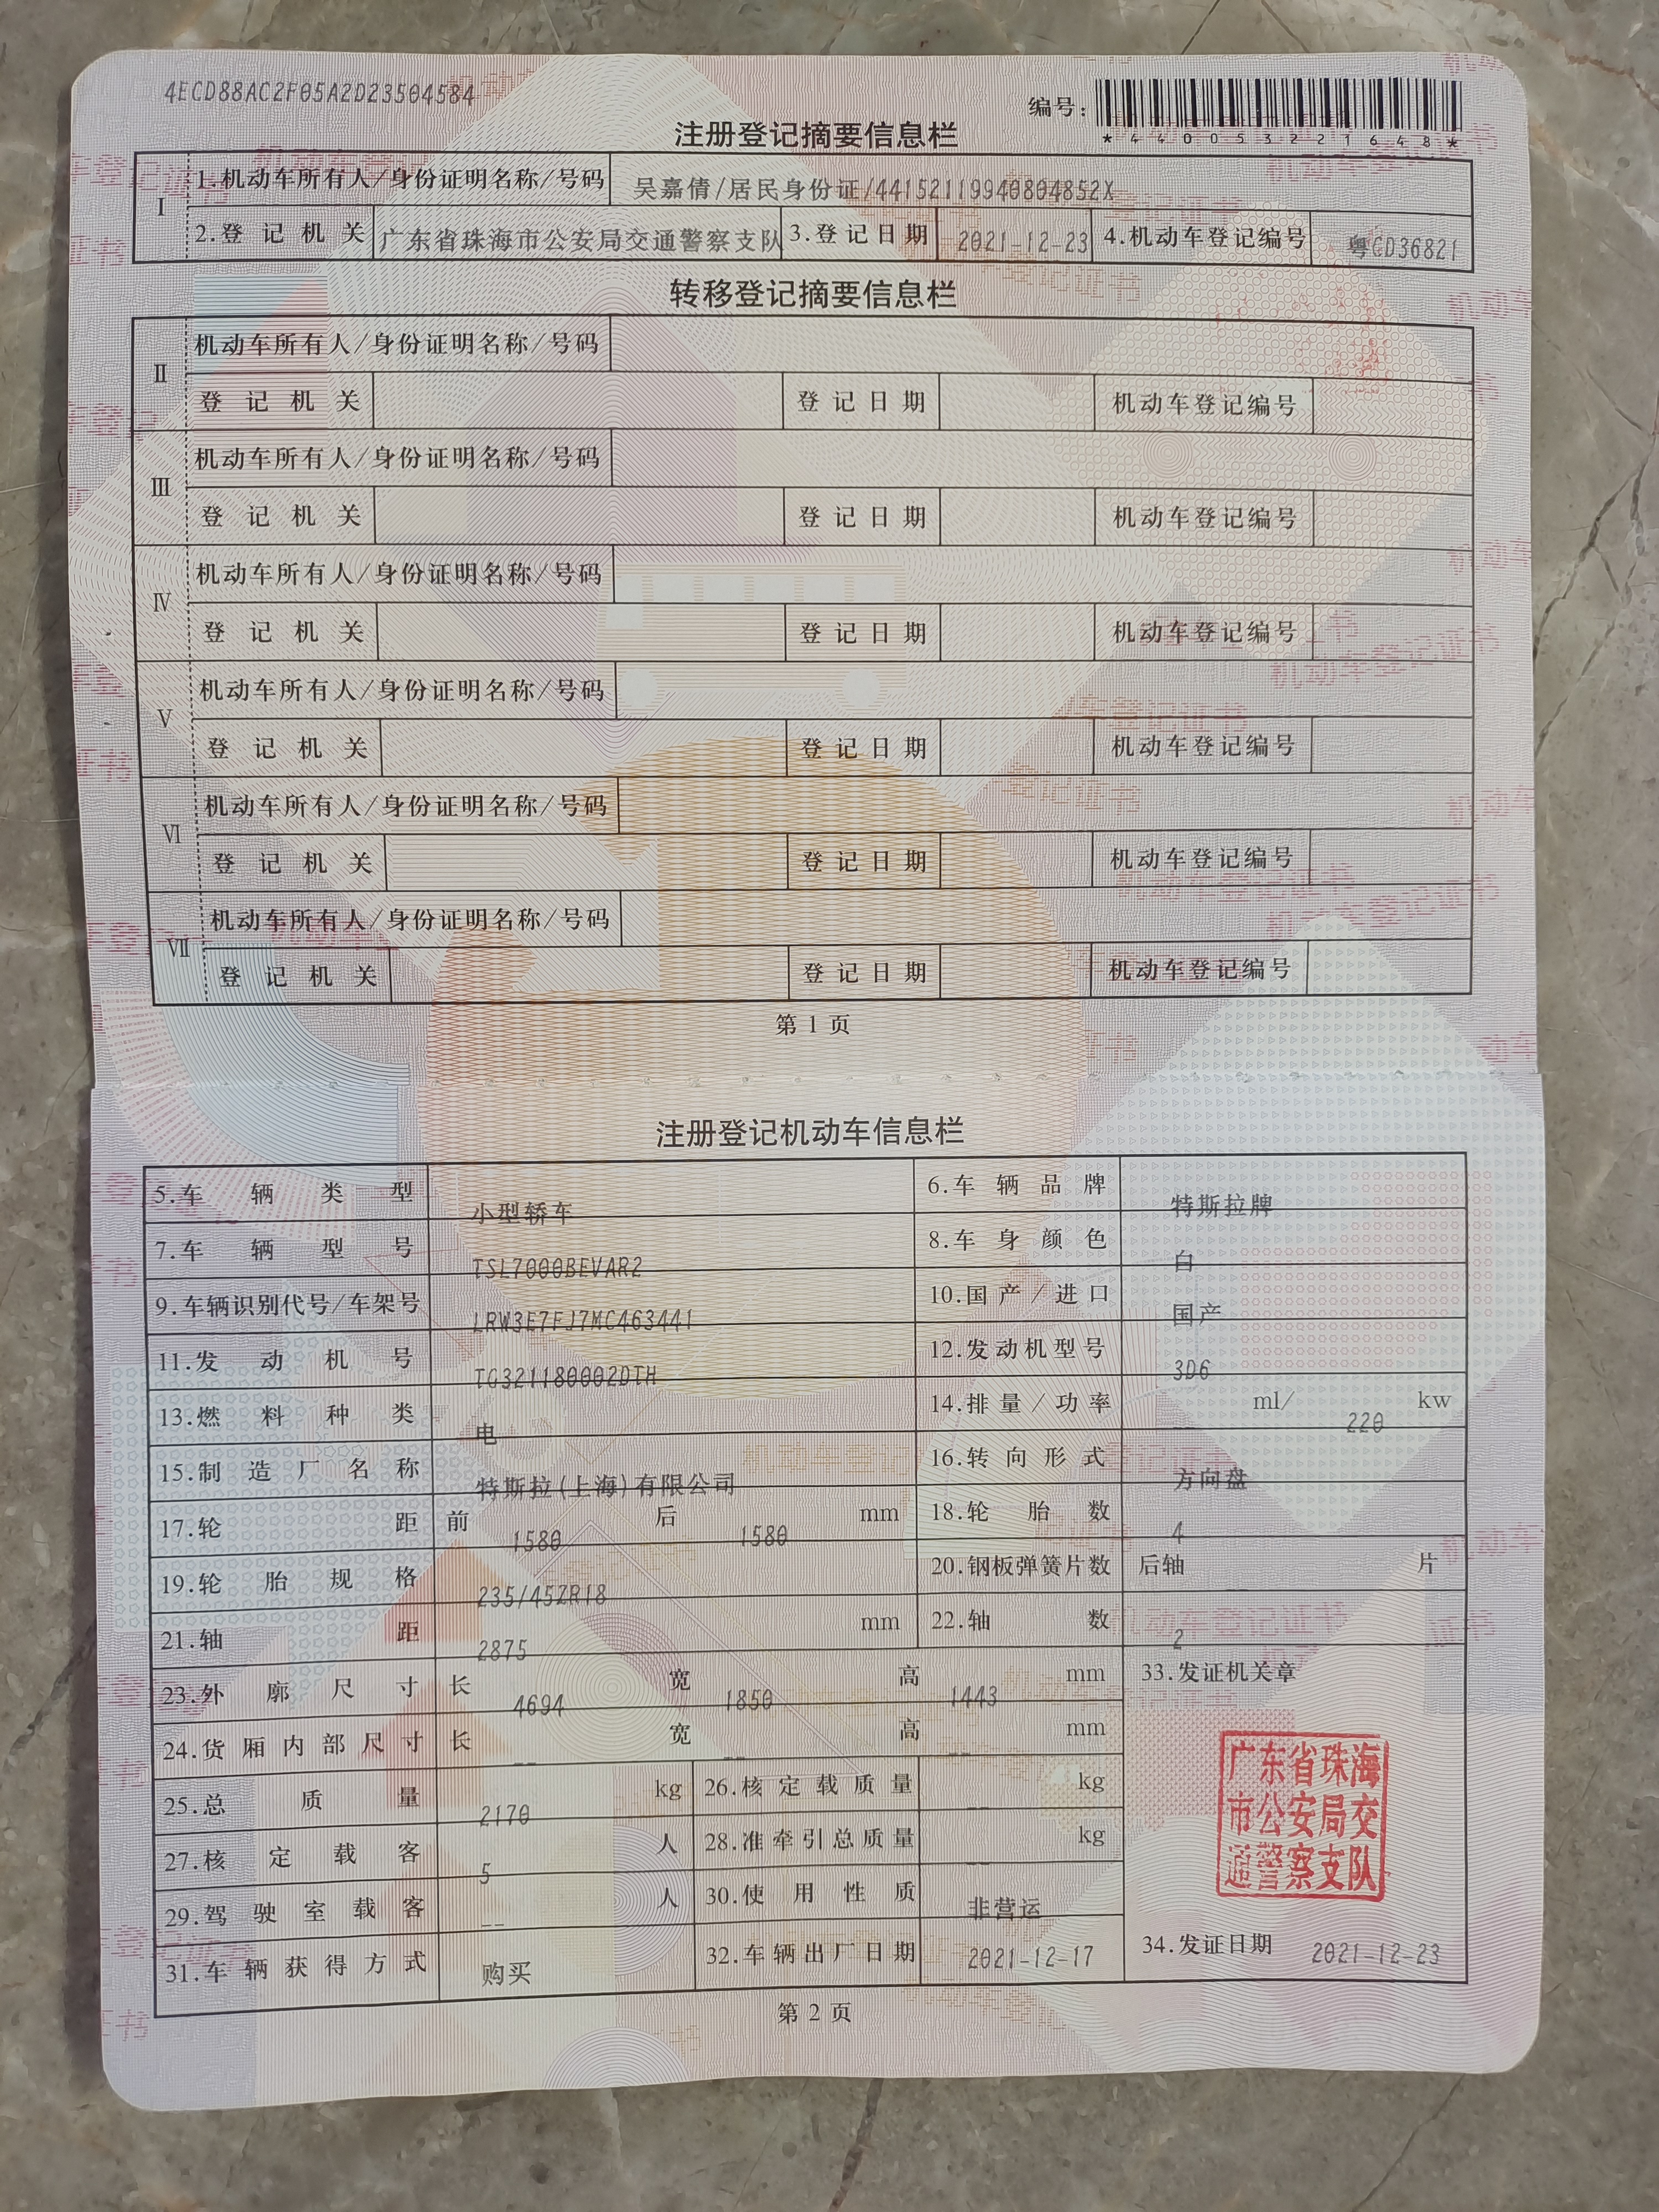 4ECD88AC2F05A2D23504584
编号:
*440053221648*
注册登记摘要信息栏
I 1.机动车所有人/身份证明名称/号码 吴嘉倩/居民身份证/44152119940804852X
2.登记机关 广东省珠海市公安局交通警察支队 3.登记日期 2021-12-23 4.机动车登记编号 粤CD36821
转移登记摘要信息栏
II 机动车所有人/身份证明名称/号码
登记机关 登记日期 机动车登记编号
III 机动车所有人/身份证明名称/号码
登记机关 登记日期 机动车登记编号
IV 机动车所有人/身份证明名称/号码
登记机关 登记日期 机动车登记编号
V 机动车所有人/身份证明名称/号码
登记机关 登记日期 机动车登记编号
VI 机动车所有人/身份证明名称/号码
登记机关 登记日期 机动车登记编号
VII 机动车所有人/身份证明名称/号码
登记机关 登记日期 机动车登记编号
第 1 页
注册登记机动车信息栏
5.车辆类型 小型轿车 6.车辆品牌 特斯拉牌
7.车辆型号 TSL7000BEVAR2 8.车身颜色 白
9.车辆识别代号/车架号 LRW3E7FJ7MC463441 10.国产/进口 国产
11.发动机号 TG321180002DTH 12.发动机型号 3D6
13.燃料种类 电 14.排量/功率 -- ml/ 220 kw
15.制造厂名称 特斯拉(上海)有限公司 16.转向形式 方向盘
17.轮距 前 1580 后 1580 mm 18.轮胎数 4
19.轮胎规格 235/45ZR18 20.钢板弹簧片数 后轴 -- 片
21.轴距 2875 mm 22.轴数 2
23.外廓尺寸 长 4694 宽 1850 高 1443 mm 33.发证机关章
24.货厢内部尺寸 长 -- 宽 -- 高 -- mm
25.总质量 2170 kg 26.核定载质量 -- kg
27.核定载客 5 人 28.准牵引总质量 -- kg
29.驾驶室载客 -- 人 30.使用性质 非营运
广东省珠海
市公安局交
通警察支队
31.车辆获得方式 购买 32.车辆出厂日期 2021-12-17 34.发证日期 2021-12-23
第 2 页